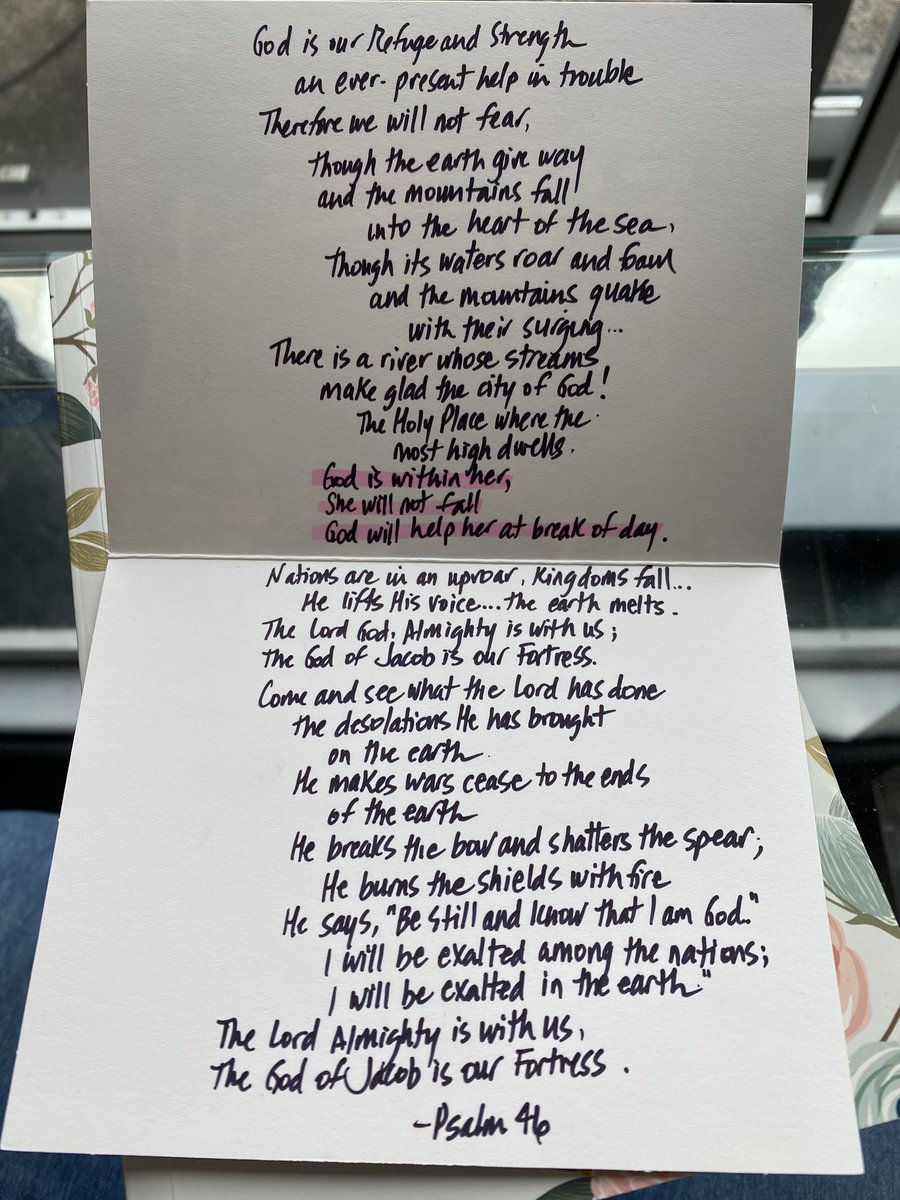 God is our Refuge and Strength
an ever-present help in trouble
Therefore we will not fear,
though the earth give way
and the mountains fall
into the heart of the sea,
though its waters roar and foam
and the mountains quake
with their surging...
There is a river whose streams
make glad the city of God!
The Holy Place where the
most high dwells.
God is within her,
She will not fall
God will help her at break of day.
Nations are in an uproar, Kingdoms fall...
He lifts His voice.... the earth melts.
The Lord God, Almighty is with us;
the God of Jacob is our Fortress.
Come and see what the Lord has done
the desolations He has brought
on the earth.
He makes wars cease to the ends
of the earth
He breaks the bow and shatters the spear;
He burns the shields with fire
He says, "Be still and know that I am God."
I will be exalted among the nations;
I will be exalted in the earth."
The Lord Almighty is with us,
The God of Jacob is our Fortress.
-Psalm 46